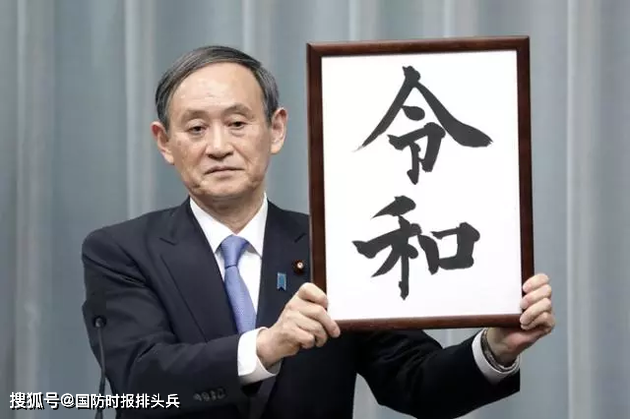 令
和
搜狐号@国防时报排头兵